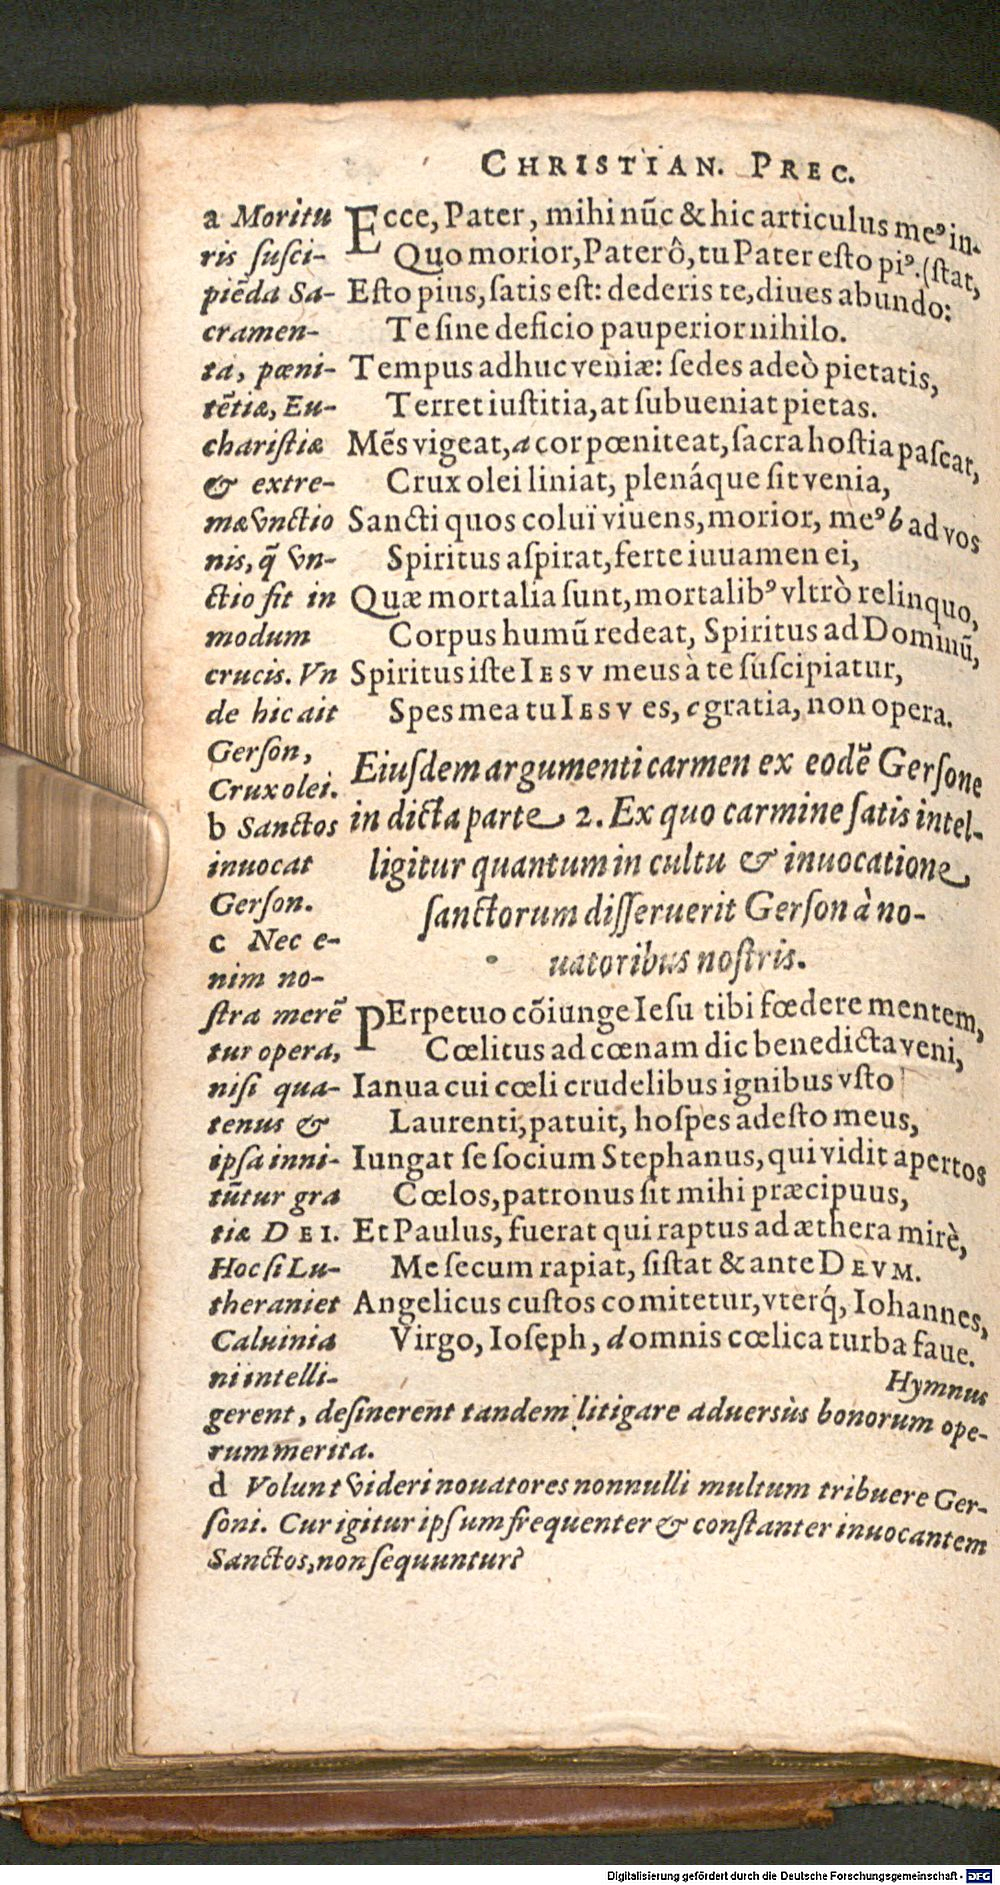 CHRISTIAN. PREC.
Ecce, Pater, mihi nũc & hic articulus meꝰ in-
Quo morior, Pater ô, tu Pater esto piꝰ. (stat,
Esto pius, satis est: dederis te, diues abundo:
Te sine deficio pauperior nihilo.
Tempus adhuc veniæ: sedes adeò pietatis,
Terret iustitia, at subueniat pietas.
Mẽs vigeat, a cor pœniteat, sacra hostia pascat,
Crux olei liniat, plenáque sit venia,
Sancti quos coluï viuens, morior, meꝰ b ad vos
Spiritus aspirat, ferte iuuamen ei,
Quæ mortalia sunt, mortalibꝰ vltrò relinquo,
Corpus humũ redeat, Spiritus ad Dominũ,
Spiritus iste IESV meus à te suscipiatur,
Spes mea tu IESV es, c gratia, non opera.
Eiusdem argumenti carmen ex eodẽ Gersone
in dicta parte 2. Ex quo carmine satis intel-
ligitur quantum in cultu & inuocatione
sanctorum disseruerit Gerson à no-
uatoribus nostris.
PErpetuo cõiunge Iesu tibi fœdere mentem,
Cœlitus ad cœnam dic benedicta veni,
Ianua cui cœli crudelibus ignibus vsto
Laurenti, patuit, hospes adesto meus,
Iungat se socium Stephanus, qui vidit apertos
Cœlos, patronus sit mihi præcipuus,
Et Paulus, fuerat qui raptus ad æthera mirè,
Me secum rapiat, sistat & ante DEVM.
Angelicus custos comitetur, vterq́, Iohannes,
Virgo, Ioseph, d omnis cœlica turba faue.
Hymnus
a Moritu
ris susci-
piẽda Sa-
cramen-
ta, pœni-
tẽtiæ, Eu-
charistiæ
& extre-
mæ vnctio
nis, q̃ vn-
ctio fit in
modum
crucis. Vn
de hic ait
Gerson,
Crux olei.
b Sanctos
inuocat
Gerson.
c Nec e-
nim no-
stra merẽ
tur opera,
nisi qua-
tenus &
ipsa inni-
tũtur gra
tiæ DEI.
Hoc si Lu-
therani et
Caluinia
ni intelli-
gerent, desinerent tandem litigare aduersùs bonorum ope-
rum merita.
d Volunt videri nouatores nonnulli multum tribuere Ger-
soni. Cur igitur ipsum frequenter & constanter inuocantem
Sanctos, non sequuntur?
Digitalisierung gefördert durch die Deutsche Forschungsgemeinschaft - DFG